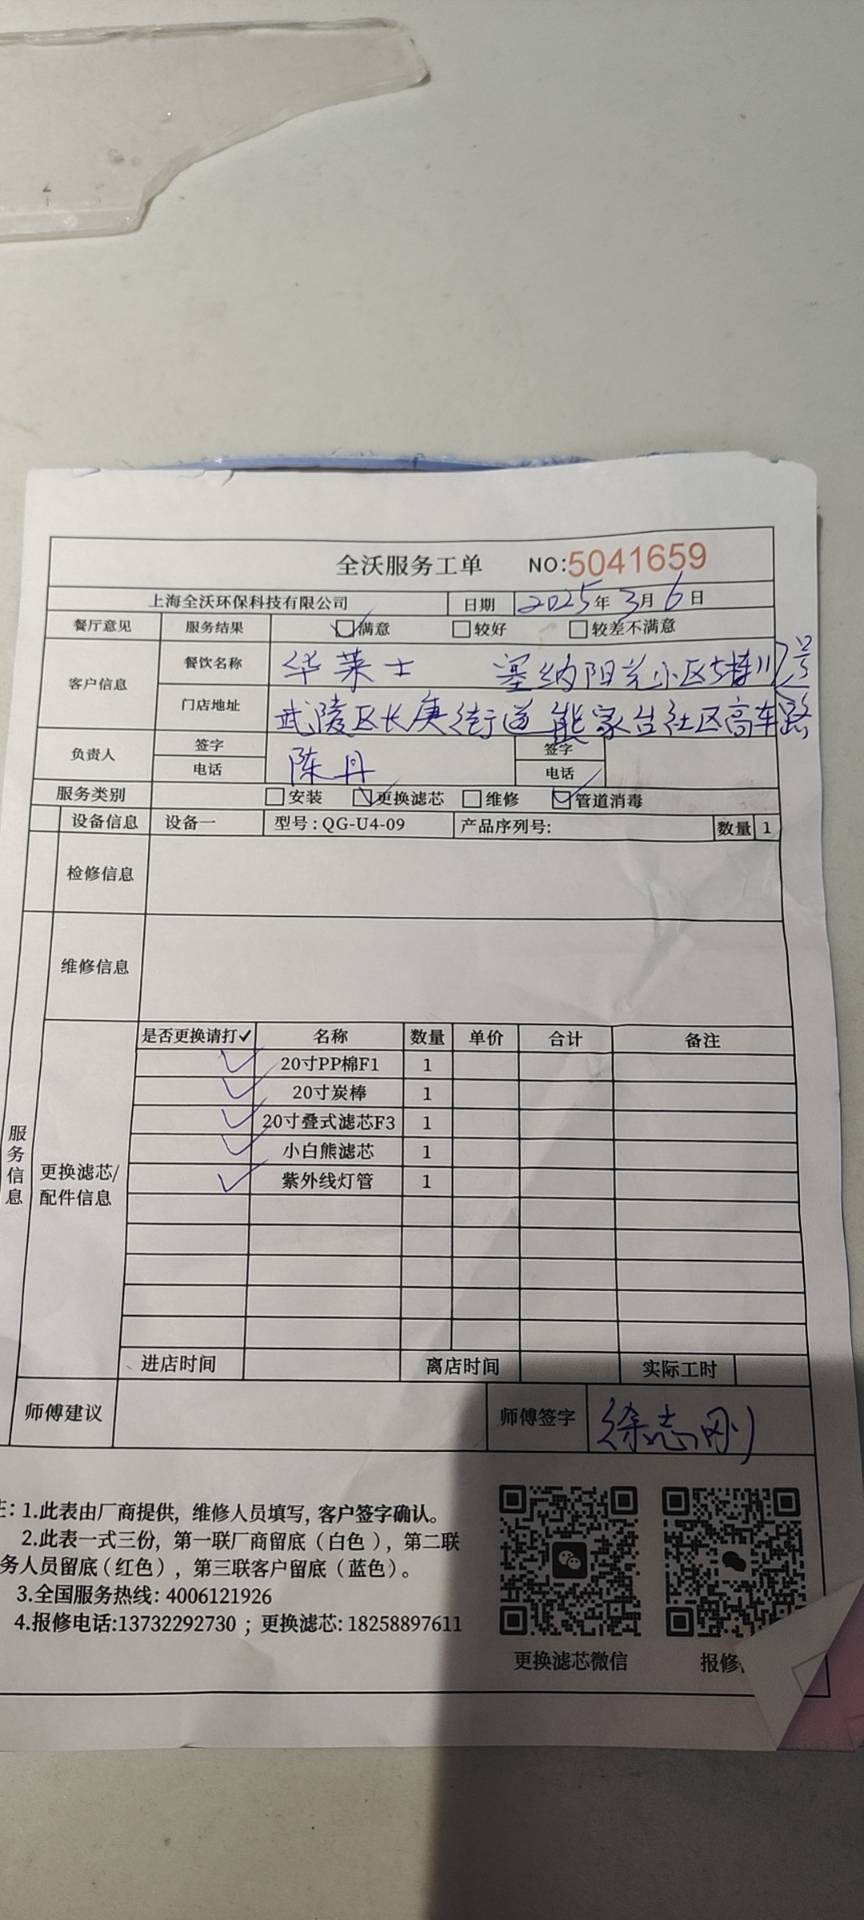 全沃服务工单 NO:5041659
上海全沃环保科技有限公司 日期 2025年3月6日
餐厅意见 服务结果 满意 较好 较差不满意
客户信息 餐饮名称 华莱士 塞纳阳光小区5栋
门店地址 武陵区长庚街道熊家台社区高车路 号
负责人 签字 陈丹 签字
电话 电话
服务类别 安装 更换滤芯 维修 管道消毒
设备信息 设备一 型号:QG-U4-09 产品序列号: 数量 1
检修信息
维修信息
服务信息
更换滤芯/配件信息
是否更换请打✓ 名称 数量 单价 合计 备注
✓ 20寸PP棉F1 1
✓ 20寸炭棒 1
✓ 20寸叠式滤芯F3 1
✓ 小白熊滤芯 1
✓ 紫外线灯管 1
进店时间 离店时间 实际工时
师傅建议 师傅签字 徐志刚
注：1.此表由厂商提供，维修人员填写，客户签字确认。
2.此表一式三份，第一联厂商留底（白色），第二联
务人员留底（红色），第三联客户留底（蓝色）。
3.全国服务热线: 4006121926
4.报修电话:13732292730 ；更换滤芯: 18258897611
更换滤芯微信 报修